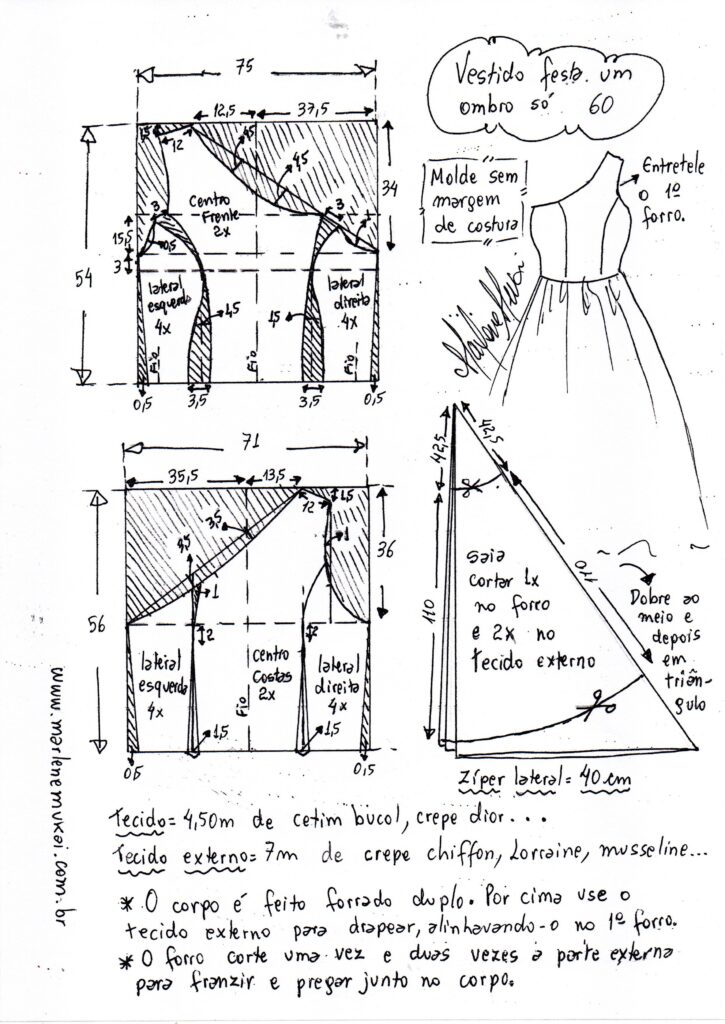 Vestido festa um
ombro só 60
75
12,5
37,5
1,5
12
4,5
4,5
34
Centro
Frente
2x
3
3
15,5
0,5
3
54
lateral
esquerda
4x
4,5
1,5
lateral
direita
4x
Fio
Fio
Fio
0,5
3,5
3,5
0,5
Molde sem
margem
de costura
Entretele
o 1º
forro.
71
35,5
13,5
12
1,5
3,5
3,5
1
1
36
56
2
2
lateral
esquerda
4x
centro
Costas
2x
lateral
direita
4x
Fio
1,5
1,5
0,5
0,5
42,5
42,5
110
110
saia
cortar 1x
no forro
e 2x no
tecido externo
Dobre ao
meio e
depois
em
triân-
gulo
Zíper lateral = 40 cm
www.marlenemukai.com.br
Tecido = 4,50m de cetim bucol, crepe dior...
Tecido externo = 7m de crepe chiffon, Lorraine, musseline...
* O corpo é feito forrado duplo. Por cima use o
tecido externo para drapear, alinhavando-o no 1º forro.
* O forro corte uma vez e duas vezes a parte externa
para franzir e pregar junto no corpo.